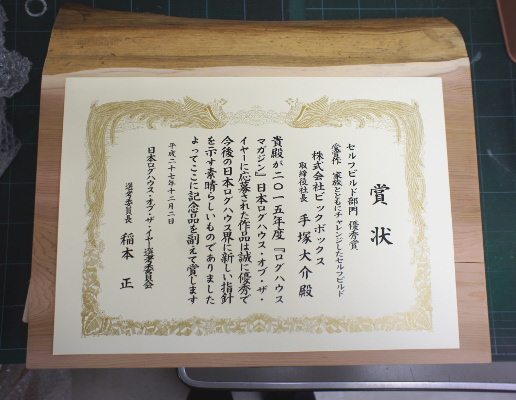 賞状
セルフビルド部門 優秀賞
受賞作 家族とともにチャレンジしたセルフビルド
株式会社ビックボックス
取締役社長 手塚大介殿
貴殿が二〇一五年度『ログハウス
マガジン』日本ログハウス・オブ・ザ・
イヤーに応募された作品は誠に優秀で
今後の日本ログハウス界に新しい指針
を示す素晴らしいものでありました
よってここに記念品を副えて賞します
平成二十七年十二月二日
日本ログハウス・オブ・ザ・イヤー選考委員会
選考委員長 稲本 正